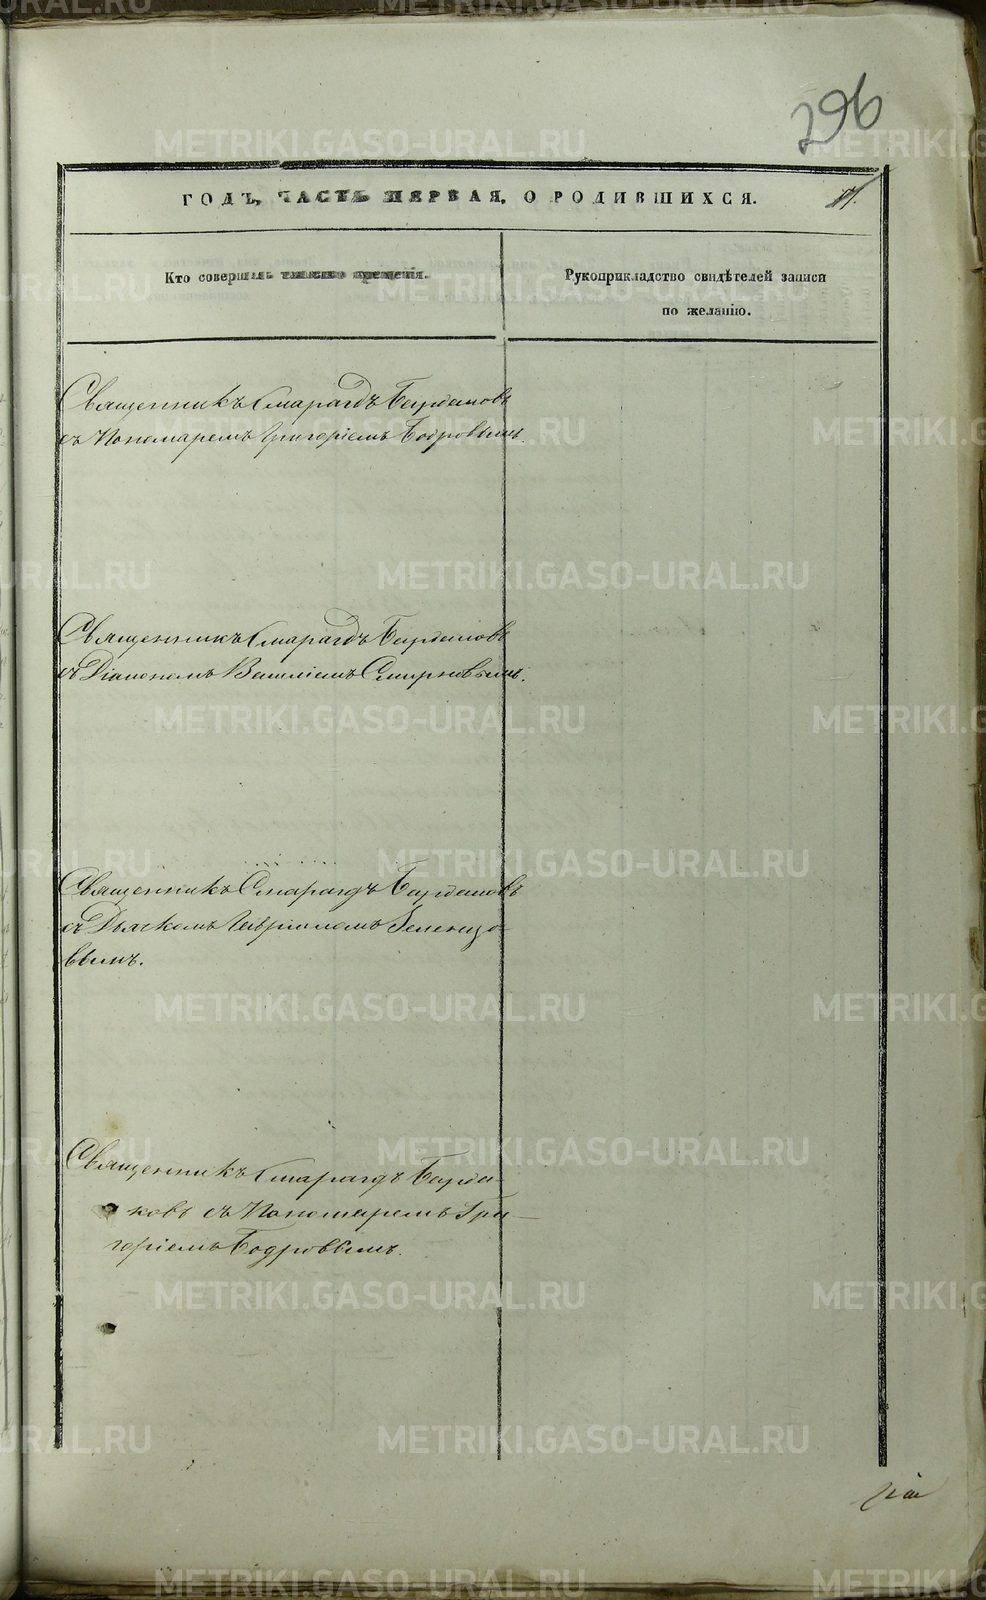 296
ГОДЪ, ЧАСТЬ ПЕРВАЯ, О РОДИВШИХСЯ.
Кто совершалъ таинство крещенія.
Рукоприкладство свидѣтелей записи
по желанію.
Священникъ Смарагдъ Бурдаковъ
съ Пономаремъ Григоріемъ Бодровымъ.
Священникъ Смарагдъ Бурдаковъ
съ Діакономъ Василіемъ Смирновымъ.
Священникъ Смарагдъ Бурдаковъ
съ Дьячкомъ Гавріиломъ Зеленцо-
вымъ.
Священникъ Смарагдъ Бурда-
ковъ съ Пономаремъ Гри-
горіемъ Бодровымъ.
METRIKI.GASO-URAL.RU